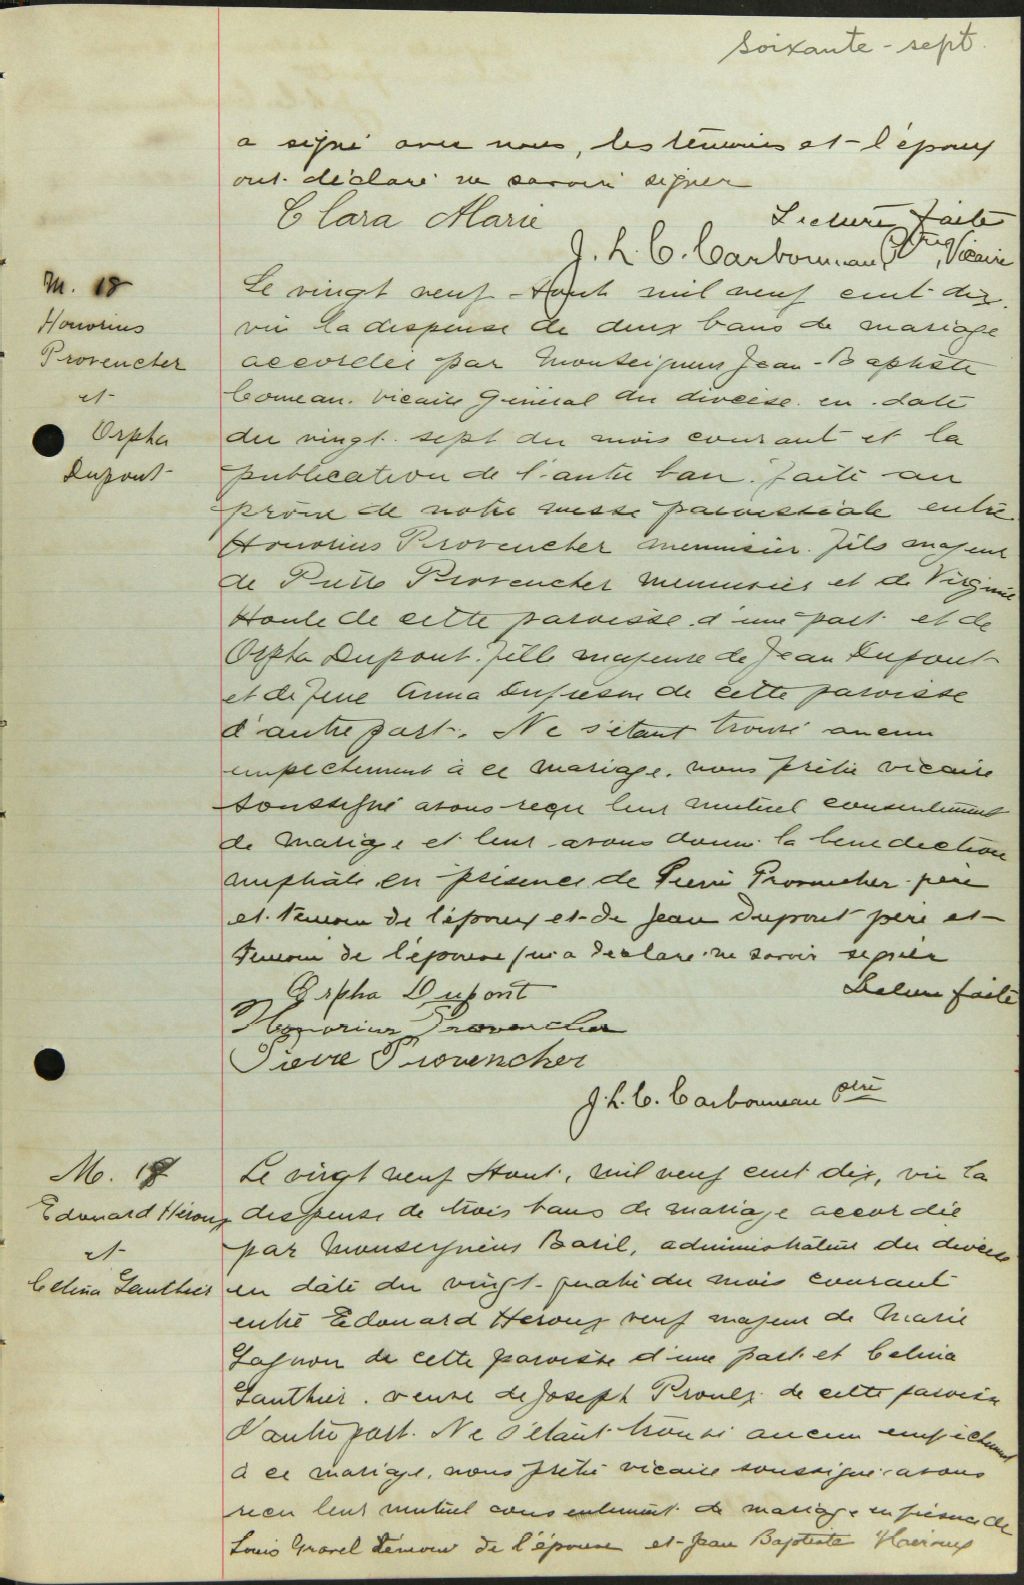 Soixante-sept.
a signé avec nous, les témoins et l'époux
ont déclaré ne savoir signer
Clara Marie
Lecture faite
J. L. C. Carbonneau, Ptre, Vicaire
M. 18
Honorius
Provencher
et
Orpha
Dupont
Le vingt neuf Aout mil neuf cent dix,
vu la dispense de deux bans de mariage
accordée par Monseigneur Jean-Baptiste
Comeau. vicaire Général du diocèse en date
du vingt-sept du mois courant et la
publication de l'autre ban faite au
prône de notre messe paroissiale entre
Honorius Provencher menuisier. fils majeur
de Pierre Provencher menuisier et de Virginie
Houle de cette paroisse d'une part et de
Orpha Dupont. fille majeure de Jean Dupont
et de feue Anna Dufresne de cette paroisse
d'autre part. Ne s'étant trouvé aucun
empêchement à ce mariage. nous prêtre vicaire
soussigné avons reçu leur mutuel consentement
de mariage et leur avons donné la bénédiction
nuptiale en présence de Pierre Provencher père
et témoin de l'époux et de Jean Dupont père et
témoin de l'épouse qui a déclaré ne savoir signer
Orpha Dupont
Lecture faite
Honorius Provencher
Pierre Provencher
J. L. C. Carbonneau ptre
M. 19
Edouard Héroux
et
Celina Gauthier
Le vingt neuf Aout, mil neuf cent dix, vu la
dispense de trois bans de mariage accordée
par Monseigneur Baril, administrateur du diocèse
en date du vingt-quatre du mois courant
entre Edouard Heroux veuf majeur de Marie
Gagnon de cette paroisse d'une part et Celina
Gauthier. veuve de Joseph Proulx de cette paroisse
d'autre part. Ne s'étant trouvé aucun empêchement
à ce mariage, nous prêtre vicaire soussigné avons
reçu leur mutuel consentement de mariage en présence de
Louis Gravel témoin de l'épouse et Jean Baptiste Héroux